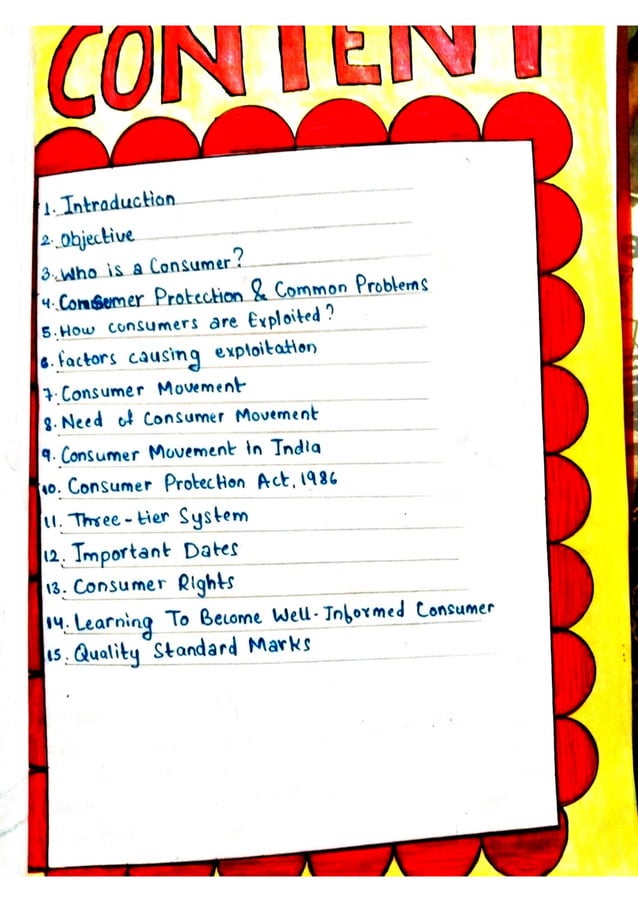 CONTENT
1. Introduction
2. Objective
3. Who is a Consumer?
4. Consumer Protection & Common Problems
5. How consumers are Exploited?
6. factors causing exploitation
7. Consumer Movement
8. Need of Consumer Movement
9. Consumer Movement in India
10. Consumer Protection Act, 1986
11. Three-tier System
12. Important Dates
13. Consumer Rights
14. Learning To Become Well-Informed Consumer
15. Quality Standard Marks